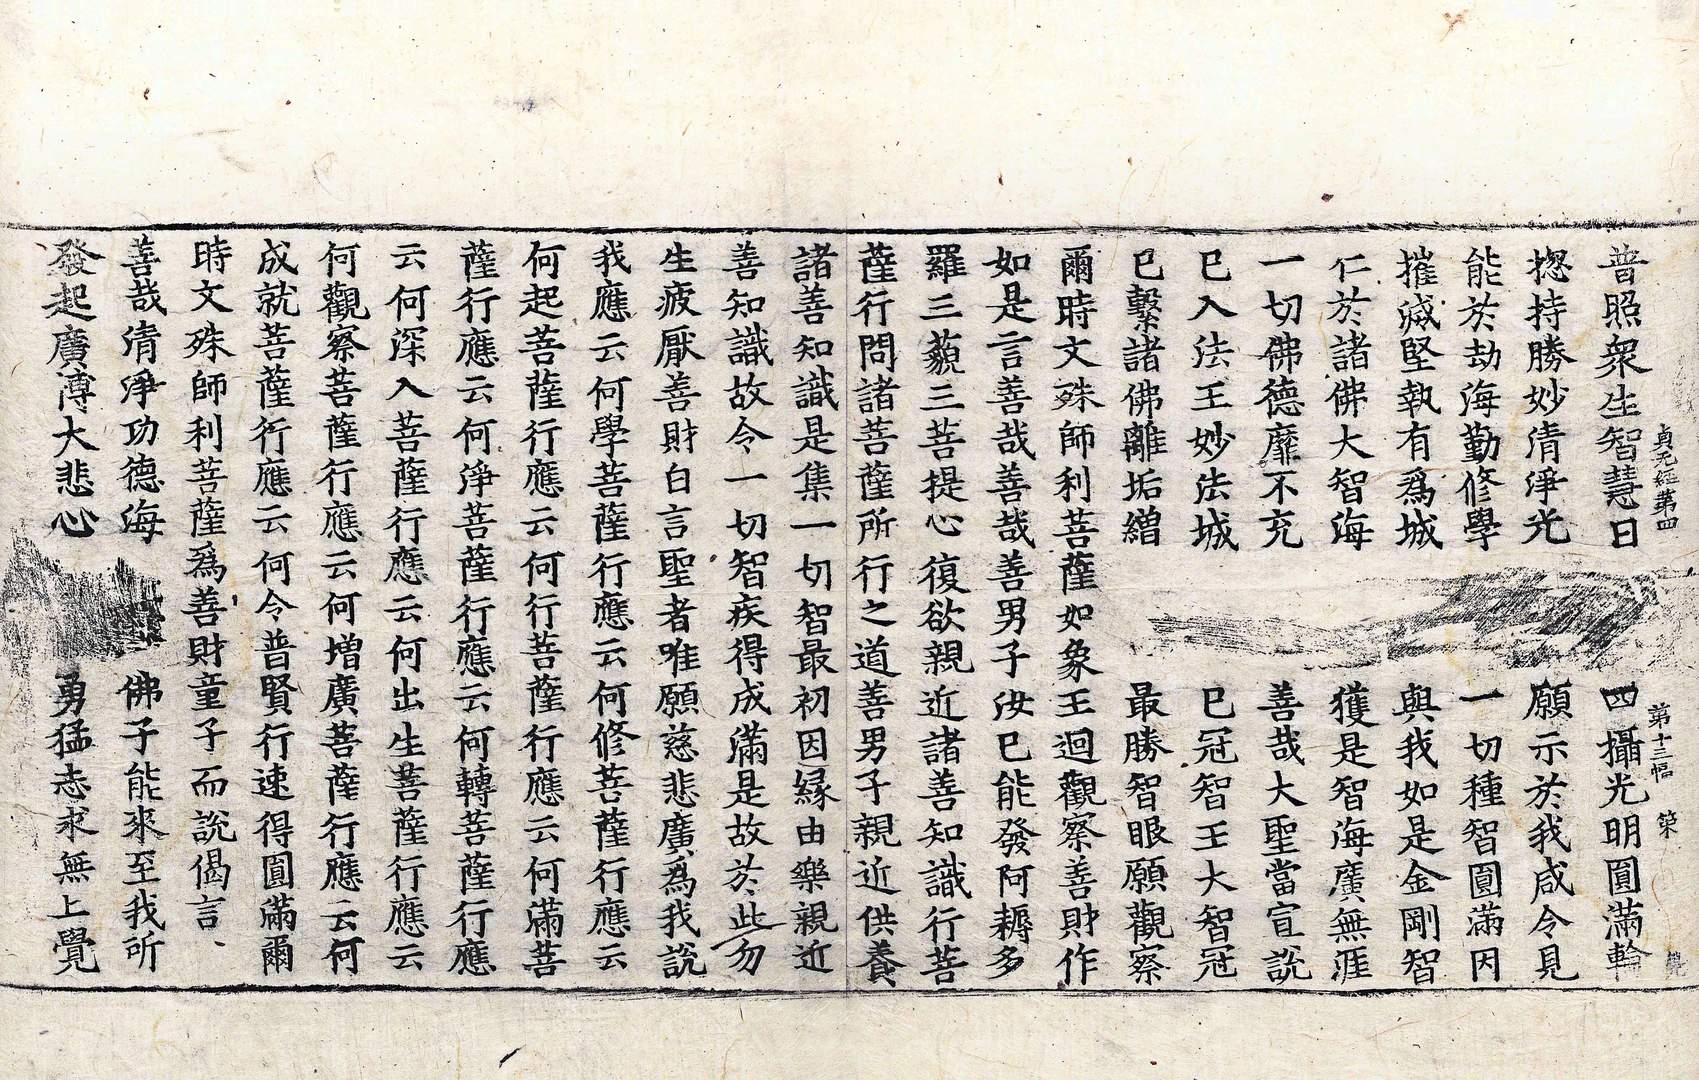 普照衆生智慧日　四攝光明圓滿輪
貞元經第四　第十三幅　築
揔持勝妙清淨光　願示於我咸令見
能於劫海勤修學　一切種智圓滿因
摧滅堅執有爲城　與我如是金剛智
仁於諸佛大智海　獲是智海廣無涯
一切佛德靡不充　善哉大聖當宣說
已入法王妙法城　已冠智王大智冠
已繫諸佛離垢繒　最勝智眼願觀察
爾時文殊師利菩薩如象王迴觀察善財作
如是言善哉善哉善男子汝已能發阿耨多
羅三藐三菩提心復欲親近諸善知識行菩
薩行問諸菩薩所行之道善男子親近供養
諸善知識是集一切智最初因緣由樂親近
善知識故令一切智疾得成滿是故於此勿
生疲厭善財白言聖者唯願慈悲廣爲我說
我應云何學菩薩行應云何修菩薩行應云
何起菩薩行應云何行菩薩行應云何滿菩
薩行應云何淨菩薩行應云何轉菩薩行應
云何深入菩薩行應云何出生菩薩行應云
何觀察菩薩行應云何增廣菩薩行應云何
成就菩薩行應云何令普賢行速得圓滿爾
時文殊師利菩薩爲善財童子而說偈言
善哉清淨功德海　佛子能來至我所
發起廣博大悲心　勇猛志求無上覺